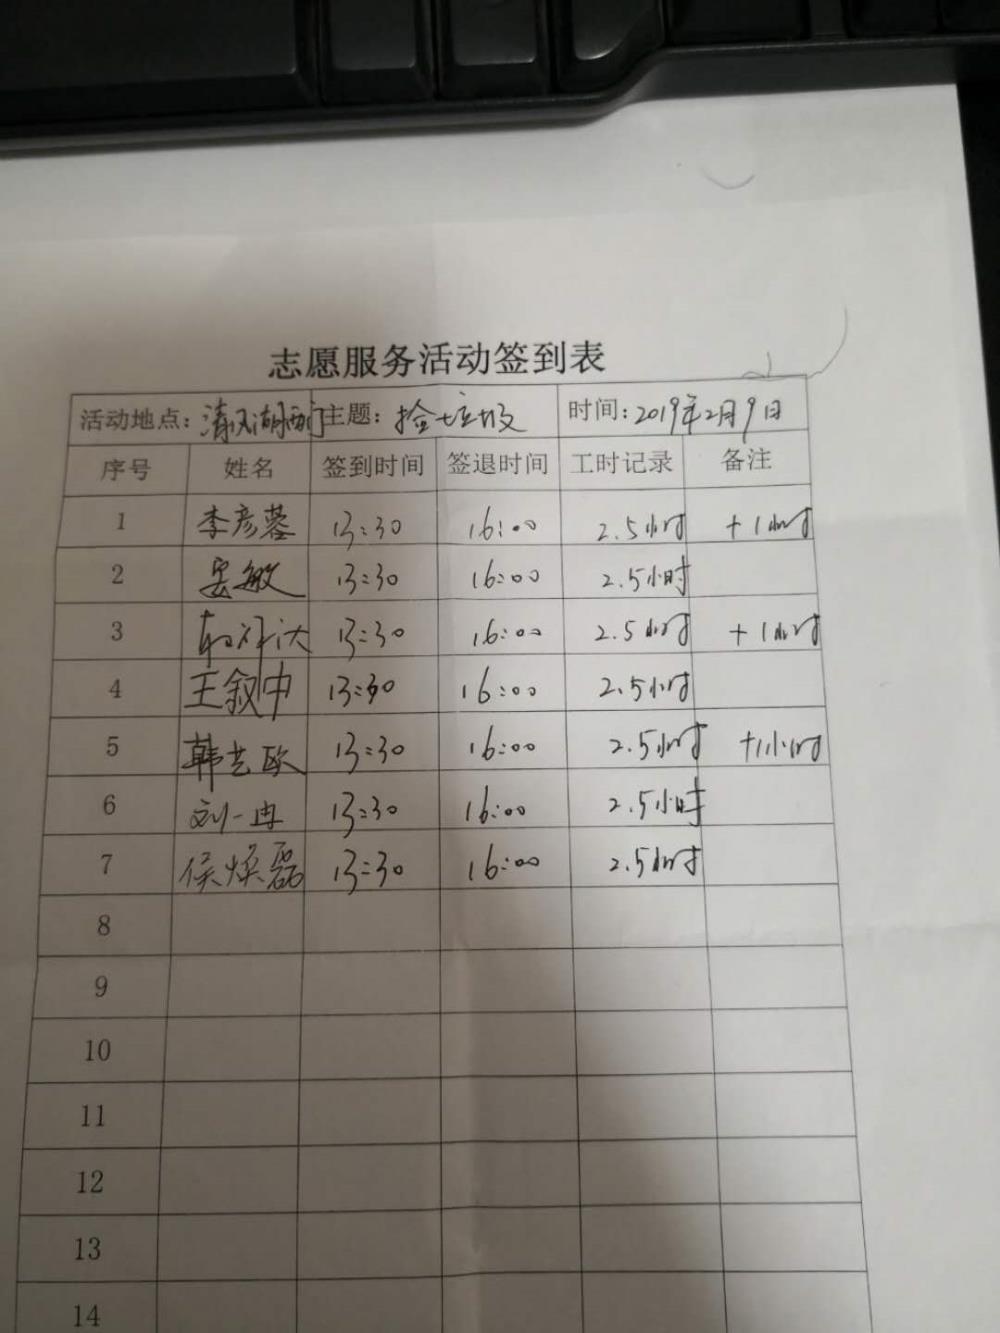 志愿服务活动签到表
活动地点：清风湖西门 主题：捡垃圾 时间：2019年2月9日
序号 姓名 签到时间 签退时间 工时记录 备注
1 李彦蓉 13:30 16:00 2.5小时 +1小时
2 晏敏 13:30 16:00 2.5小时
3 13:30 16:00 2.5小时 +1小时
4 王叙中 13:30 16:00 2.5小时
5 韩艺欧 13:30 16:00 2.5小时 +1小时
6 刘一冉 13:30 16:00 2.5小时
7 侯焕磊 13:30 16:00 2.5小时
8
9
10
11
12
13
14